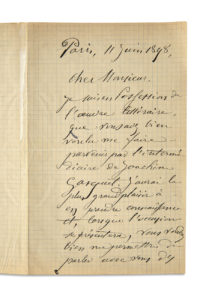 Paris, 11 juin 1898,
Cher Monsieur,
je suis en possession de
l'œuvre littéraire,
que vous avez bien
voulu me faire
parvenir par l'intermé
diaire de Joachim
Gasquet. j'aurai le
plus grand plaisir à
en prendre connaissance
et lorsque l'occasion
se présentera, vous voudrez
bien me permettre d'en
parler avec vous. d'ici